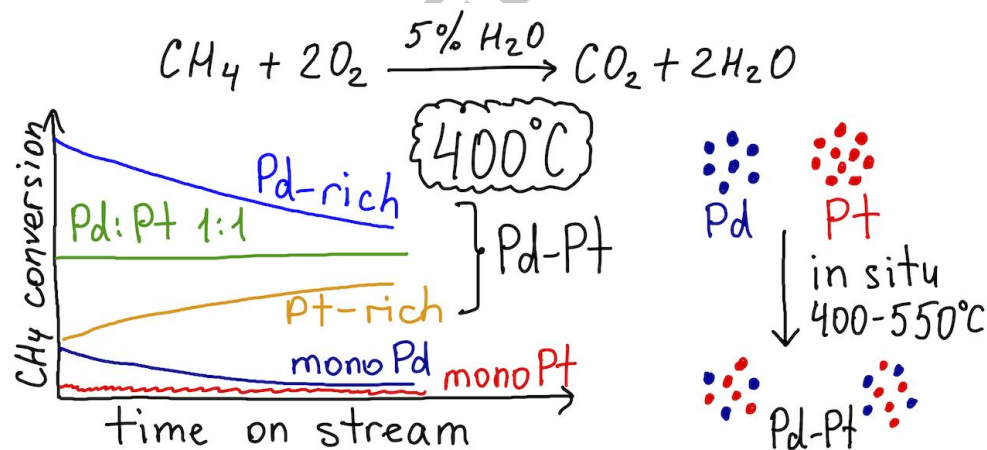 5% H₂O
CH₄ + 2O₂ → CO₂ + 2H₂O
400°C
CH₄ conversion
Pd-rich
Pd:Pt 1:1
Pt-rich
Pd-Pt
mono Pd
mono Pt
time on stream
Pd
Pt
in situ
400-550°C
Pd-Pt